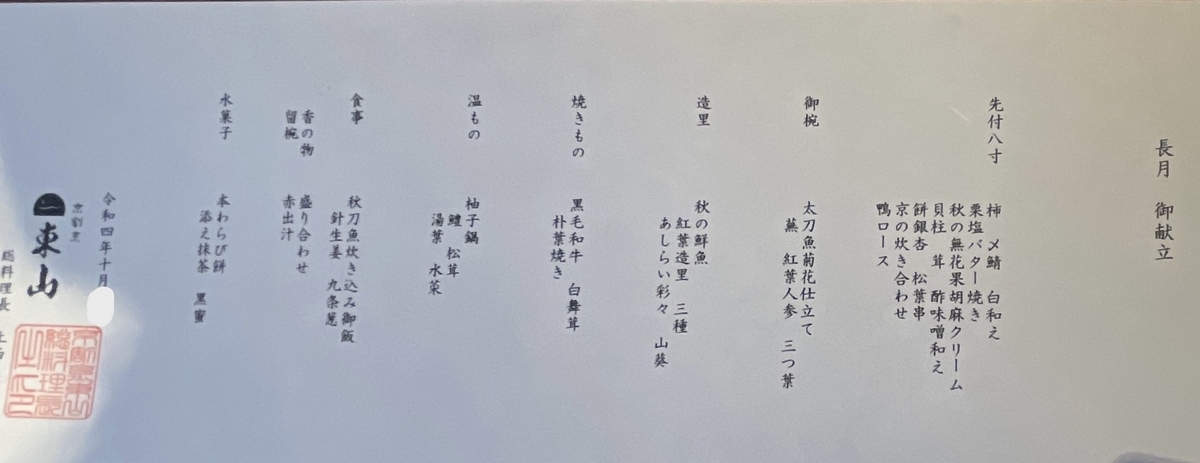 長月 御献立
先付八寸
柿 〆鯖 白和え
栗塩バター焼き
秋の無花果胡麻クリーム
貝柱 茸 酢味噌和え
餅銀杏 松葉串
京の炊き合わせ
鴨ロース
御椀
太刀魚菊花仕立て
蕪 紅葉人参 三つ葉
造里
秋の鮮魚
紅葉造里 三種
あしらい彩々 山葵
焼きもの
黒毛和牛 白舞茸
朴葉焼き
温もの
柚子鍋
鱧 松茸
湯葉 水菜
食事
秋刀魚炊き込み御飯
針生姜 九条葱
香の物
盛り合わせ
留椀
赤出汁
水菓子
本わらび餅
添え抹茶 黒蜜
令和四年十月
京割烹
東山
総料理長